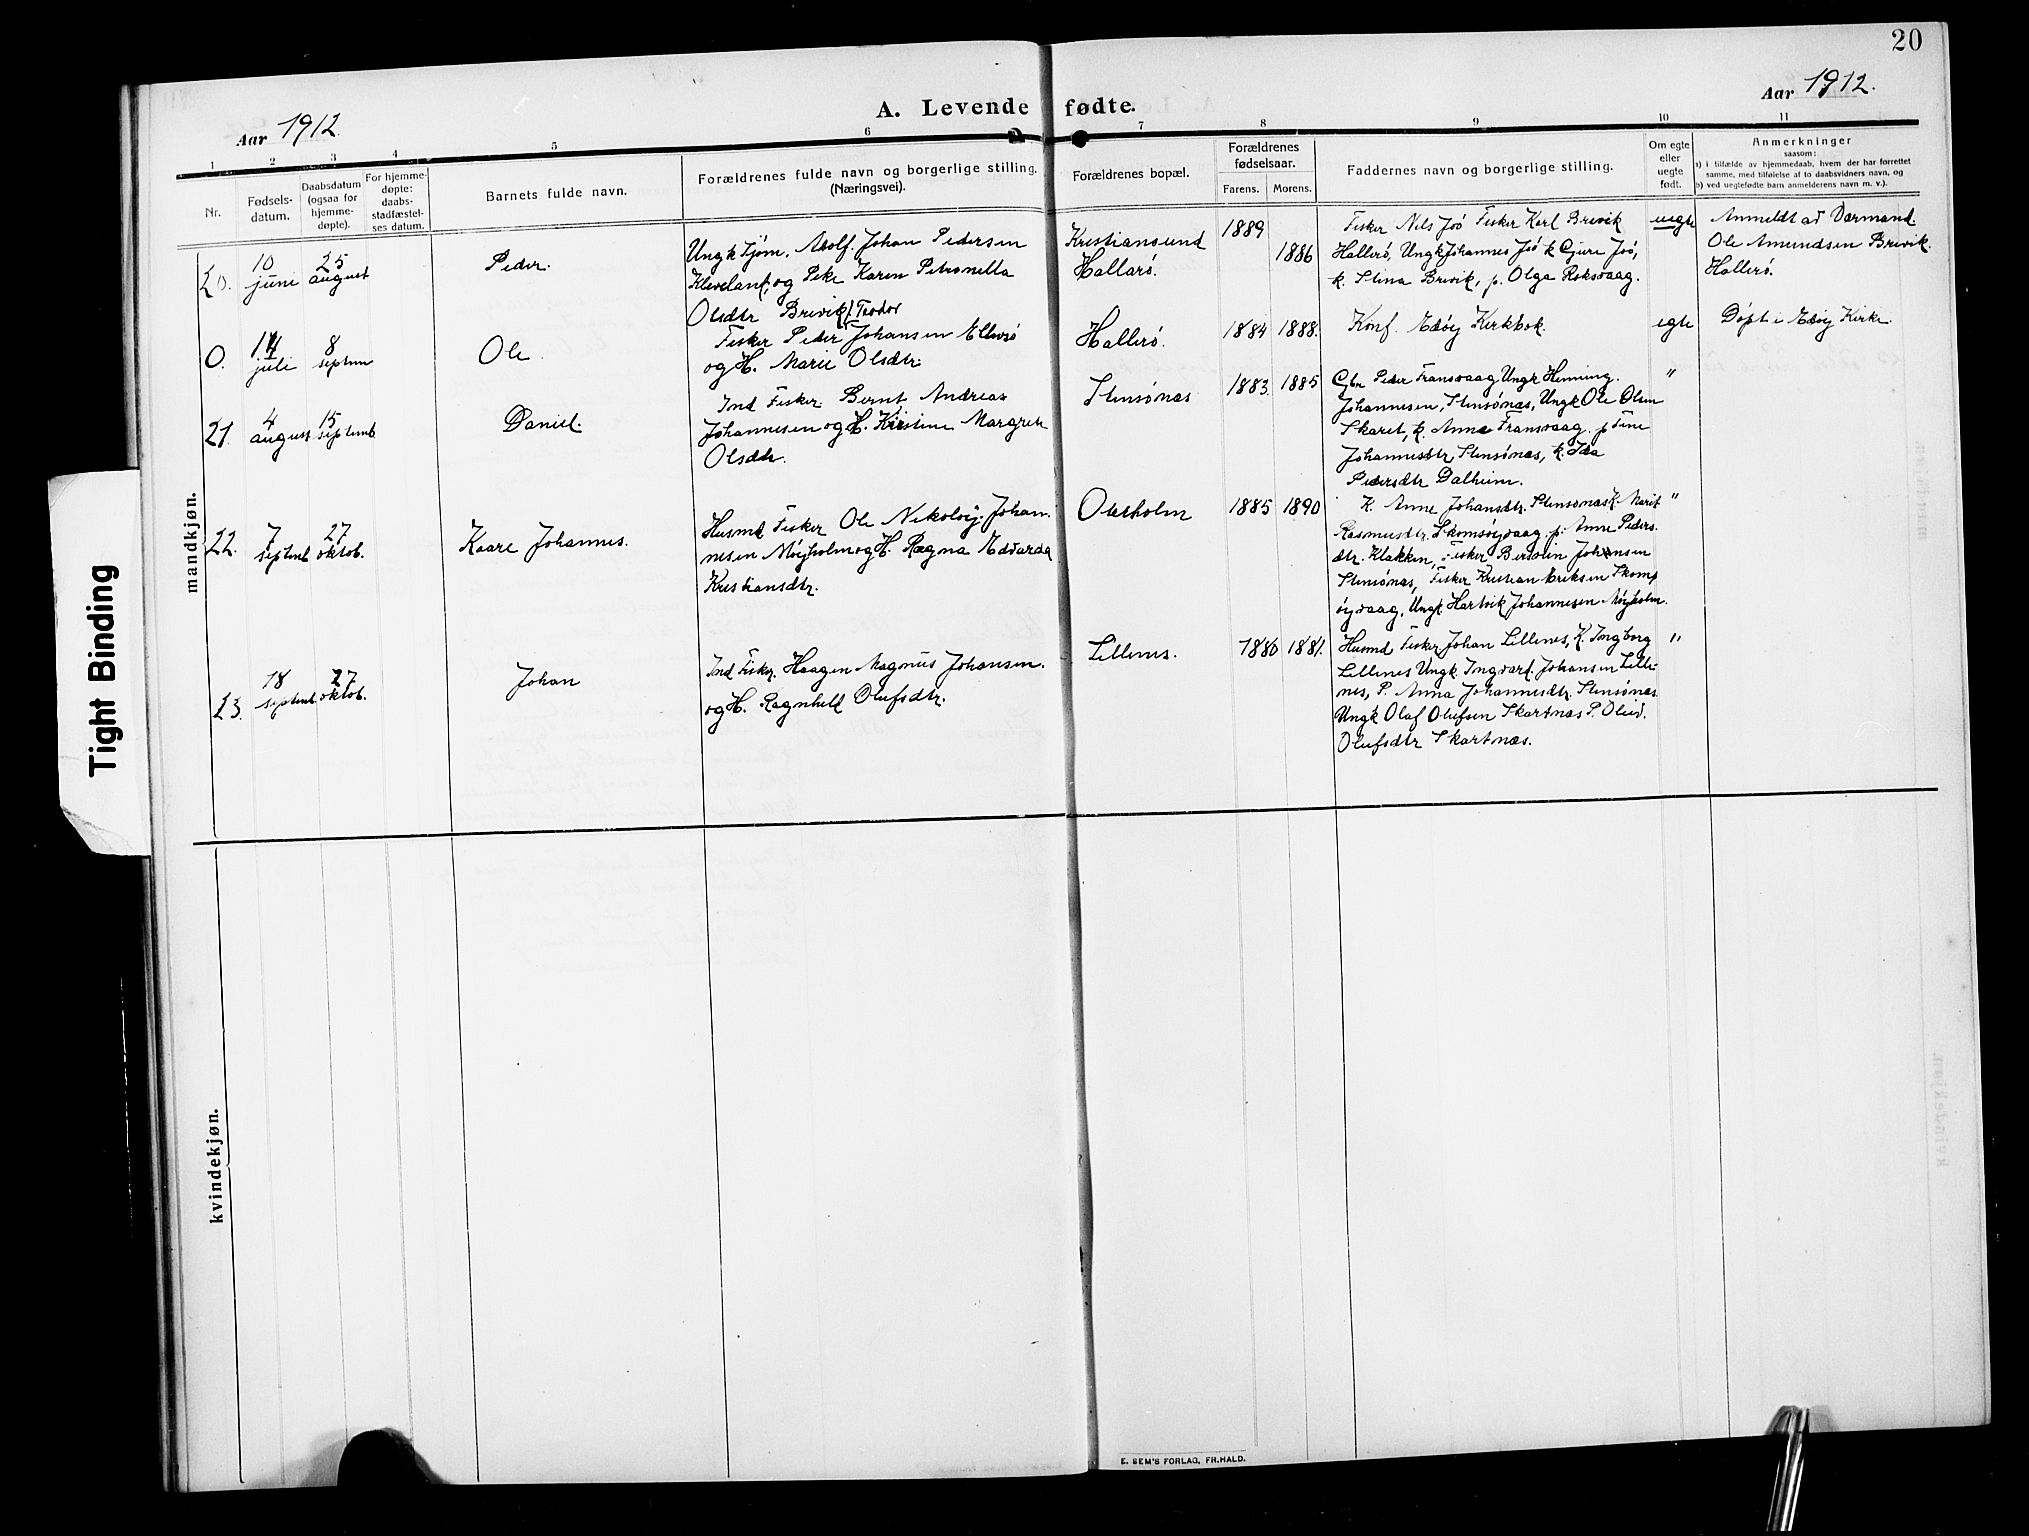 20
Aar 1912.
A. Levende fødte.
Aar 1912.
1 2 3 4 5 6 7 8 9 10 11
Nr.
Fødsels-
datum.
Daabsdatum
(ogsaa for
hjemme-
døpte).
For hjemme-
døpte:
daabs-
stadfæstel-
ses datum.
Barnets fulde navn.
Forældrenes fulde navn og borgerlige stilling.
(Næringsvei).
Forældrenes bopæl.
Forældrenes
fødselsaar.
Farens. Morens.
Faddernes navn og borgerlige stilling.
Om egte
eller
uegte
født.
Anmerkninger
saasom:
a) i tilfælde av hjemmedaab, hvem der har forrettet
samme, med tilføielse af to daabsvidners navn, og
b) ved uegtefødte barn anmelderens navn m. v.).
mandkjøn.
20.
10
juni
25
august
Peder.
Ungk Tjom. Adolf Johan Pedersen
Kleveland, og Pike Karen Petronella
Olsdtr Brevik
Kristiansund
Hallarö.
1889
1886
Fisker Nils Joö Fisker Karl Brevik
Hallerö, Ungk Johannes Joö k Gjure Joö,
k. Stina Brevik, p. Olga Roksvaag.
uegte
Anmeldt ad Dormand.
Ole Amundsen Brevik.
Hallerö.
0.
14
juli
8
septem
Ole.
Teodor
Fisker Peder Johansen Ellevsö
og H. Marie Olsdtr.
Hallerö.
1884 1888.
Konf. Edöy Kirkbok.
egte
Döpt i Edöy Kirke.
21.
4
august
15
septemb
Daniel.
Ind Fisker Bernt Andreas
Johannesen og H. Kristine Margrete
Olsdtr.
Stensönæs
1883. 1885
Gbr Peder Fransvaag Ungk Henning.
Johannesen, Stensönæs, Ungk Ole Olsen
Skaret, k. Anne Fransvaag. p Tine
Johannesdtr, Stensönæs, k. Ida
Pedersdtr Dalheim.
"
22.
7
septemb
27
oktob.
Kaare Johannes.
Husmd Fisker Ole Nikolay Johan.
nesen Möyholm og H. Ragna Edvarda
Kristiansdtr.
Oterholm
1885 1890
K. Anne Johansdtr. Stensönæs k. Marit
Rasmusdtr. Skomsöyvaag p. Anne Peders.
dtr. Klakken, Fisker Bersvein Johansen
Stensönæs, Fisker Kristian Eriksen Skoms
öyvaag, Ungk Hartvik Johannesen Möyholm.
"
23.
18
septemb.
27
oktob.
Johan
Ind Fisker Haagen Magnus Johansen.
og H. Ragnhild Olufsdtr.
Lillenes.
1880 1881.
Husmd Fisker Johan Lillenes, K. Ingborg
Lillenes Ungk. Ingvard. Johansen Lille-
nes, P. Anna Johannesdtr. Stensönæs.
Ungk Olaf Olufsen Skartnæs P.
Olufsdtr Skartnæs.
"
kvindekjøn.
E. SEM'S FORLAG, FR.HALD.
Tight Binding